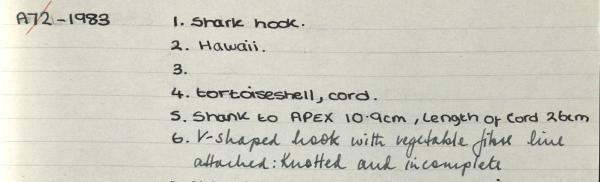 A72-1983 1. Shark hook.
2. Hawaii.
3.
4. tortoiseshell, cord.
5. Shank to APEX 10.9cm, Length of Cord 26cm
6. V-shaped hook with vegetable fibre line
attached: Knotted and incomplete